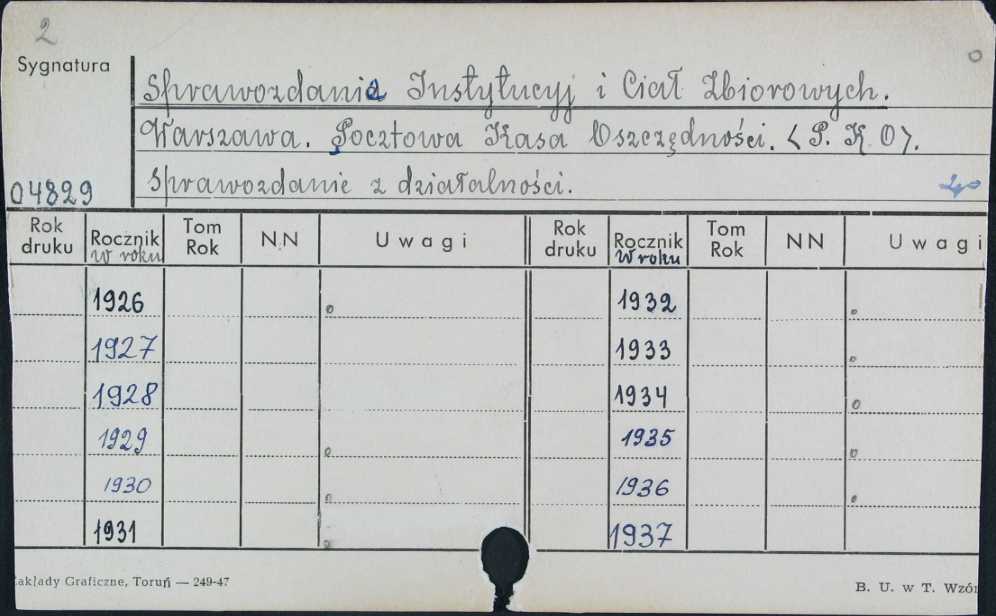 2
Sygnatura
Sprawozdania Instytucyj i Ciał Zbiorowych.
Warszawa. Pocztowa Kasa Oszczędności. (P. K. O).
04829
Sprawozdanie z działalności.
Rok druku Rocznik w roku Tom Rok NN Uwagi Rok druku Rocznik W roku Tom Rok NN Uwagi
1926 1932
1927 1933
1928 1934
1929 1935
1930 1936
1931 1937
akłady Graficzne, Toruń — 249-47 B. U. w T. Wzór